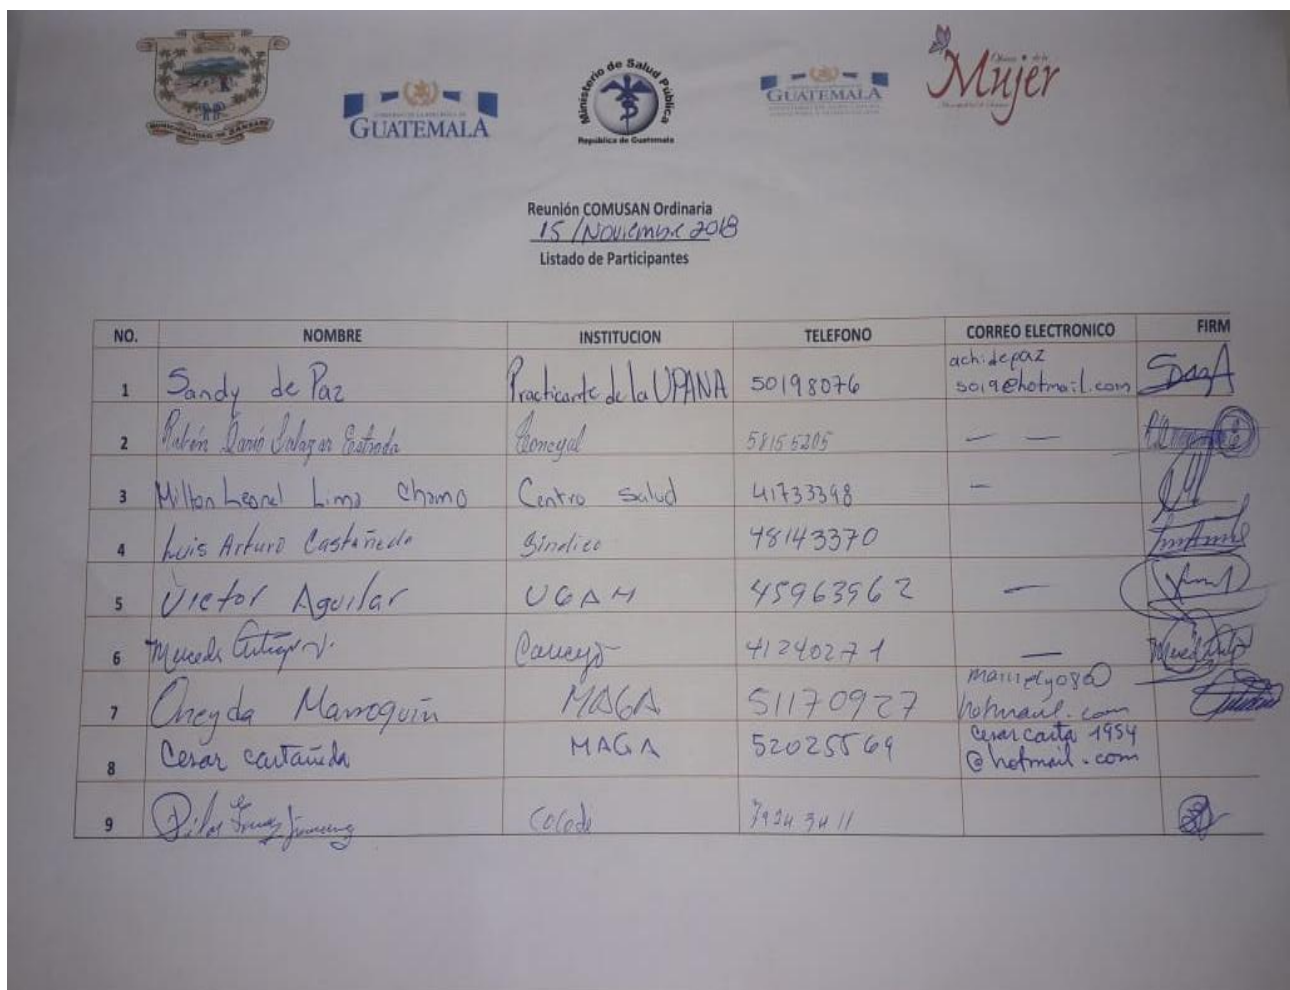 MUNICIPALIDAD DE SANSARE
GUATEMALA
Ministerio de Salud Pública
República de Guatemala
GUATEMALA
Mujer
Reunión COMUSAN Ordinaria
15/Noviembre 2018
Listado de Participantes
NO. NOMBRE INSTITUCION TELEFONO CORREO ELECTRONICO FIRM
1 Sandy de Paz Practicante de la UPANA 50198076 achidepaz
5019@hotmail.com
2 Rubén Darío Salazar Estrada Concejal 58155205 — —
3 Milton Leonel Lima Chamo Centro Salud 41733398 —
4 Luis Arturo Castañeda Sindico 48143370
5 Victor Aguilar UGAM 45963962 —
6 41240271 —
7 Oneyda Marroquín MAGA 51170927
hotmail.com
8 Cesar castañeda MAGA 52025569 cesar casta 1954
@hotmail.com
9 Cocode 79243411